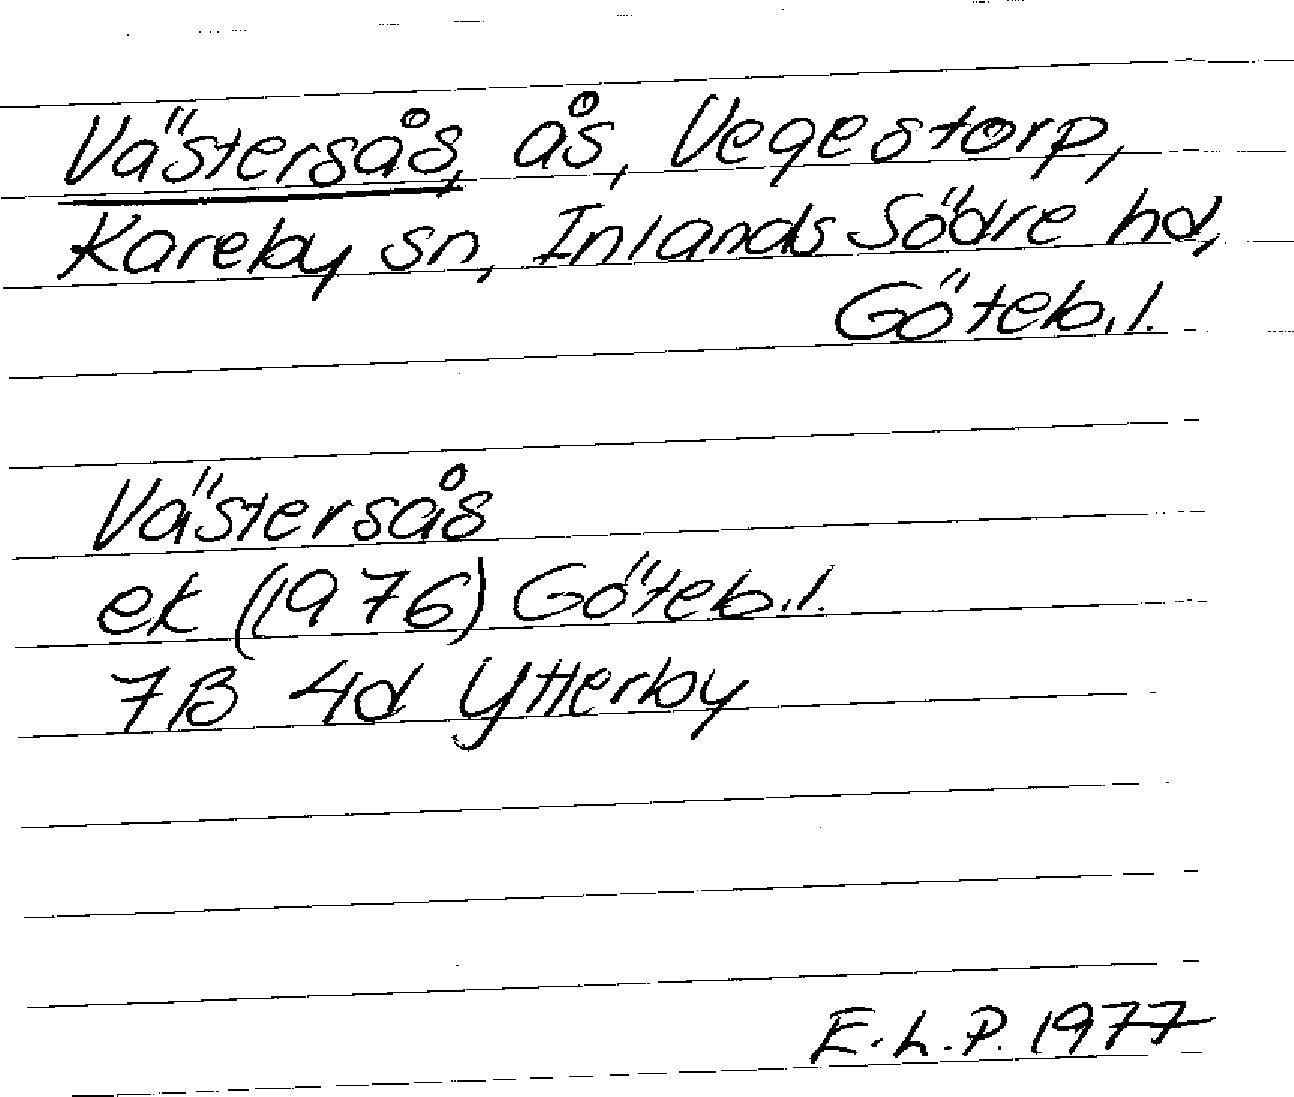 Västersås, ås, Vegestorp,
Kareby sn, Inlands Södre hd,
Göteb.l.
Västersås
ek (1976) Göteb.l.
7B 4d Ytterby
E.L.P. 1977